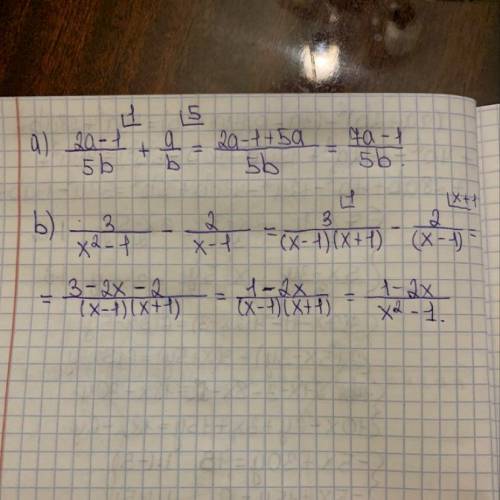 a) (2a-1)/5b ⌋1 + a/b ⌋5 = (2a-1+5a)/5b = (7a-1)/5b.
b) 3/(x²-1) - 2/(x-1) = 3/((x-1)(x+1)) ⌋1 - 2/(x-1) ⌋x+1 =
= (3-2x-2)/((x-1)(x+1)) = (1-2x)/((x-1)(x+1)) = (1-2x)/(x²-1).